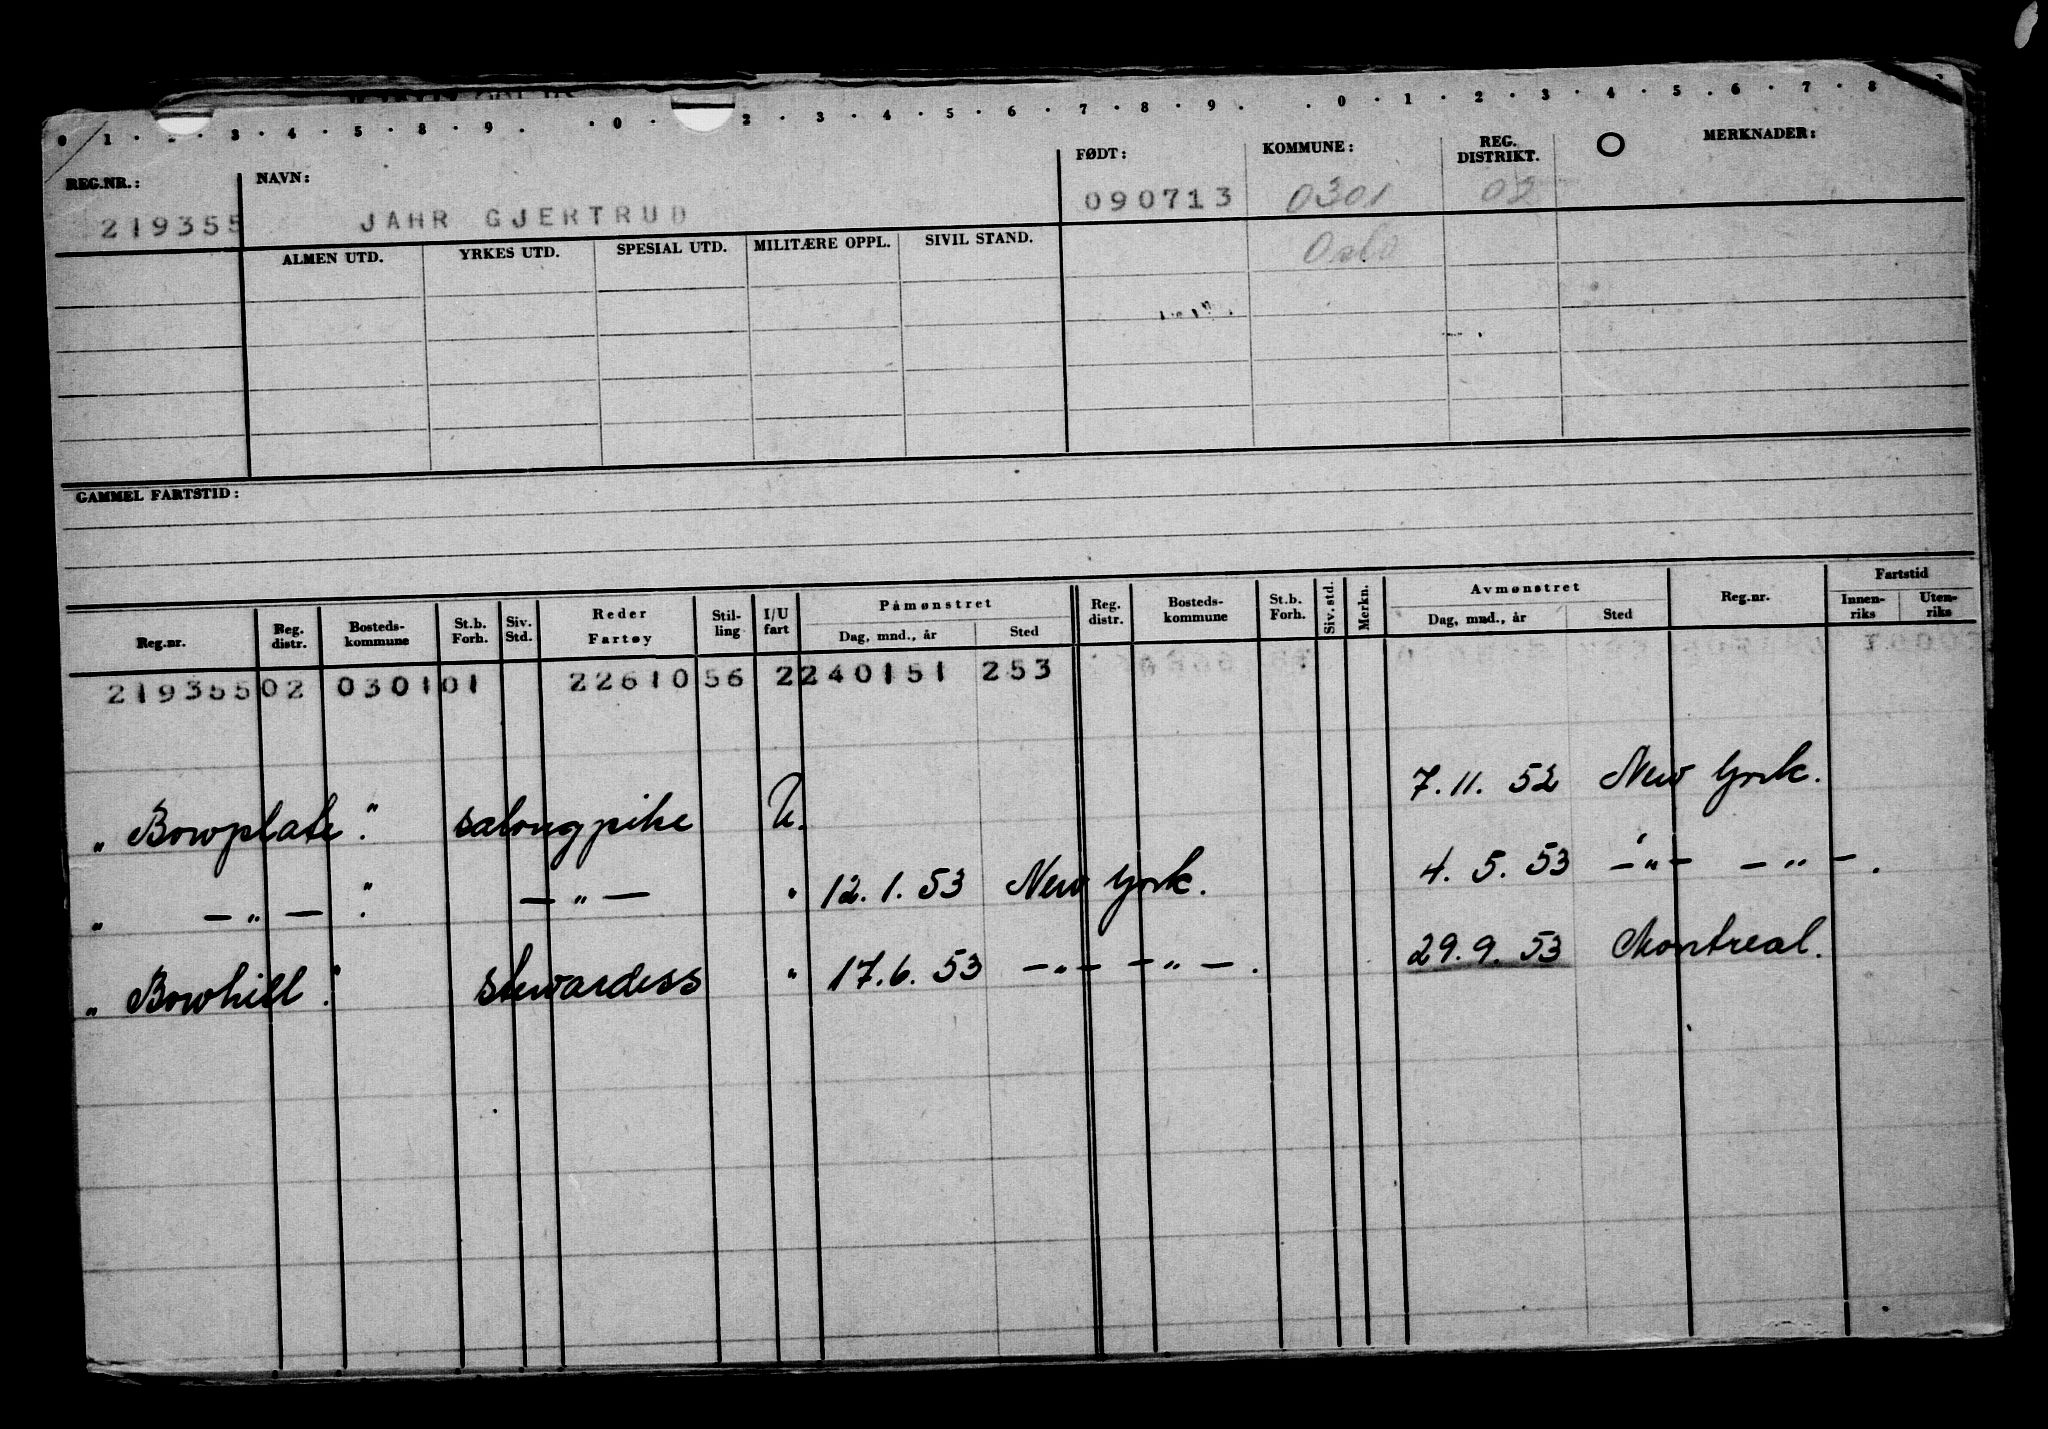 0 1 . . 3 . 4 . 5 . 8 . 9 . . 0 . 2 . 3 . 4 . 5 . 6 . 7 . 8 . 9 . . 0 . 1 . 2 . 3 . 4 . 5 . 6 . 7 . 8
REG.NR.: NAVN: FØDT: KOMMUNE: REG. DISTRIKT. O MERKNADER:
219355 JAHR GJERTRUD 090713 0301 02
ALMEN UTD. YRKES UTD. SPESIAL UTD. MILITÆRE OPPL. SIVIL STAND. Oslo
GAMMEL FARTSTID:
Reg.nr. Reg. distr. Bosteds- kommune St.b. Forh. Siv. Std. Reder Fartøy Stil- ling I/U fart Påmønstret Dag, mnd., år Sted Reg. distr. Bosteds- kommune St.b. Forh. Siv. std. Merkn. Avmønstret Dag, mnd., år Sted Reg.nr. Fartstid Innen- riks Uten- riks
219355 02 0301 01 22610 56 2 240151 253
" Bowplate". salongpike U. 7.11.52 New York.
" —"— ". —"— " 12.1.53 New York. 4.5.53 —"— —"—.
" Bowhill". stewardess " 17.6.53 —"— —"—. 29.9.53 Montreal.